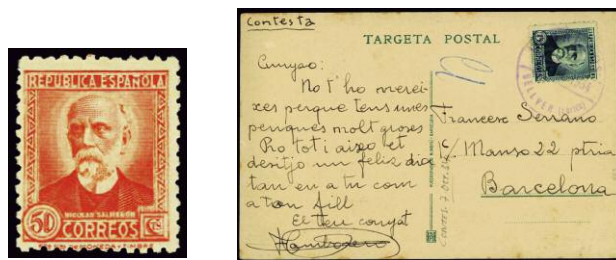 REPUBLICA ESPAÑOLA
NICOLAS SALMERON
50 CORREOS CTS
Contesta
TARGETA POSTAL
Cunyao:
No t'ho merei-
xes perque tens unes
penques molt groses
Pro tot i aixo et
desitjo un feliz dia
tan en a tu com
a ton fill
El teu cunyat
Francesc Serrano
C/ Manso 22 ptria
Barcelona
BELLVER